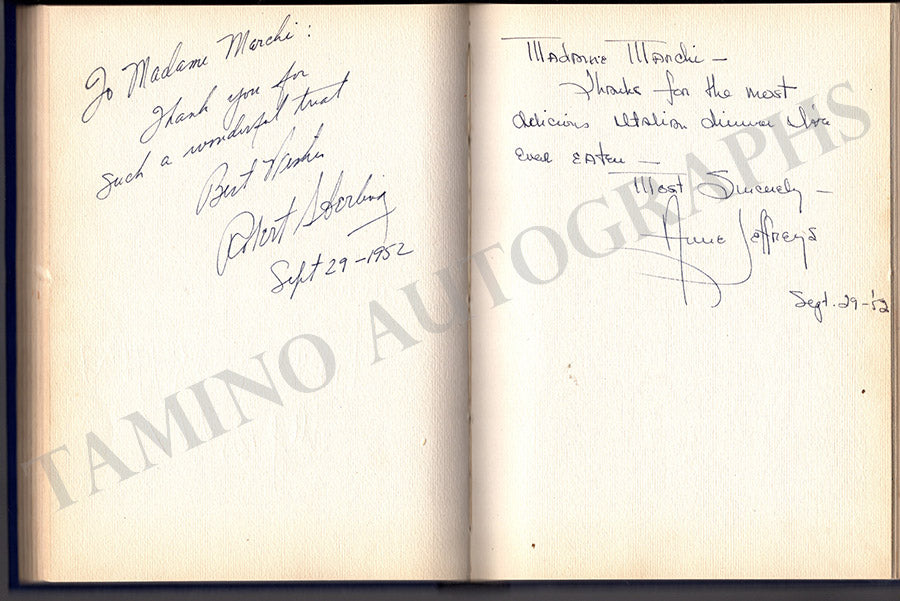 To Madame Marchi:
Thank you for
such a wonderful treat
Best Wishes
Robert Sterling
Sept 29-1952
Madame Marchi –
Thanks for the most
delicious Italian dinner I've
ever eaten –
Most Sincerely –
Anne Jeffreys
Sept. 29-'52
TAMINO AUTOGRAPHS